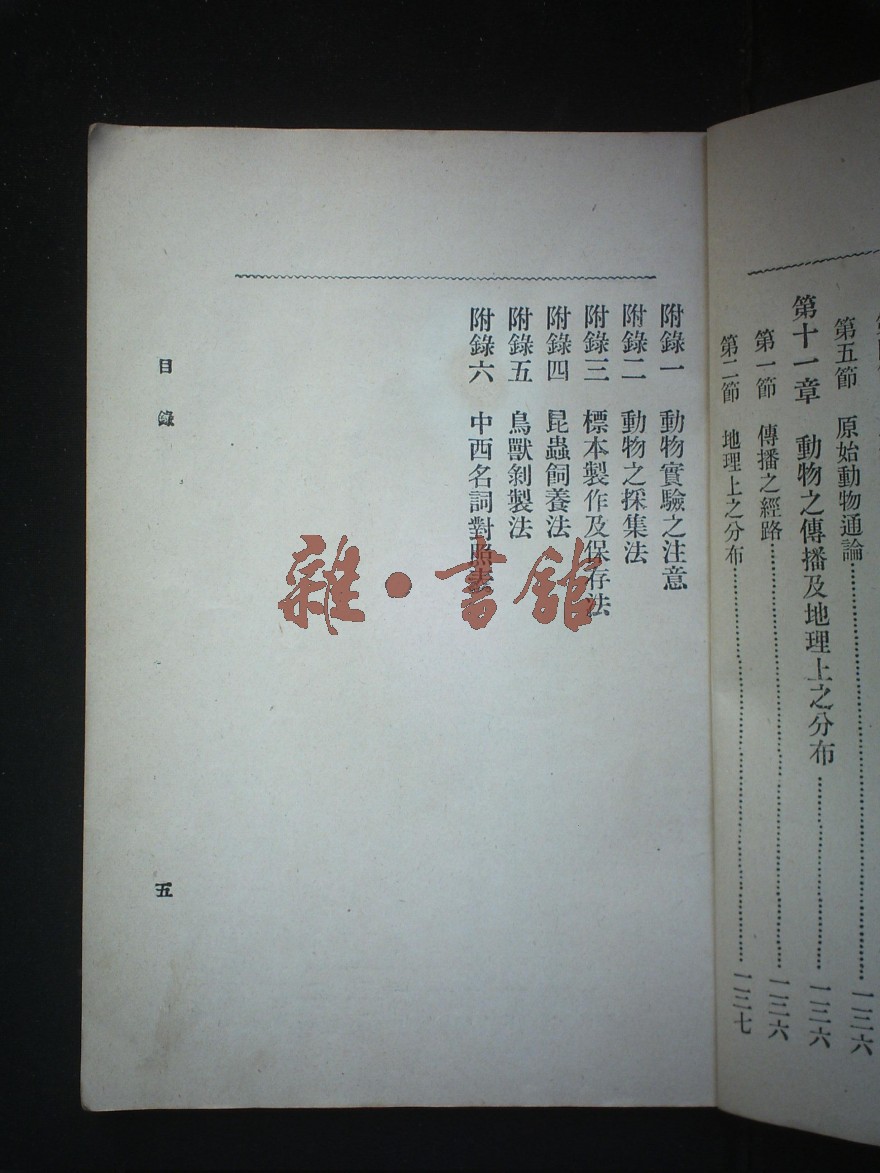 第五節　原始動物通論……一三六
第十一章　動物之傳播及地理上之分布……一三六
第一節　傳播之經路……一三六
第二節　地理上之分布……一三七
附錄一　動物實驗之注意
附錄二　動物之採集法
附錄三　標本製作及保存法
附錄四　昆蟲飼養法
附錄五　鳥獸剝製法
附錄六　中西名詞對照表
目錄
五
雜·書館